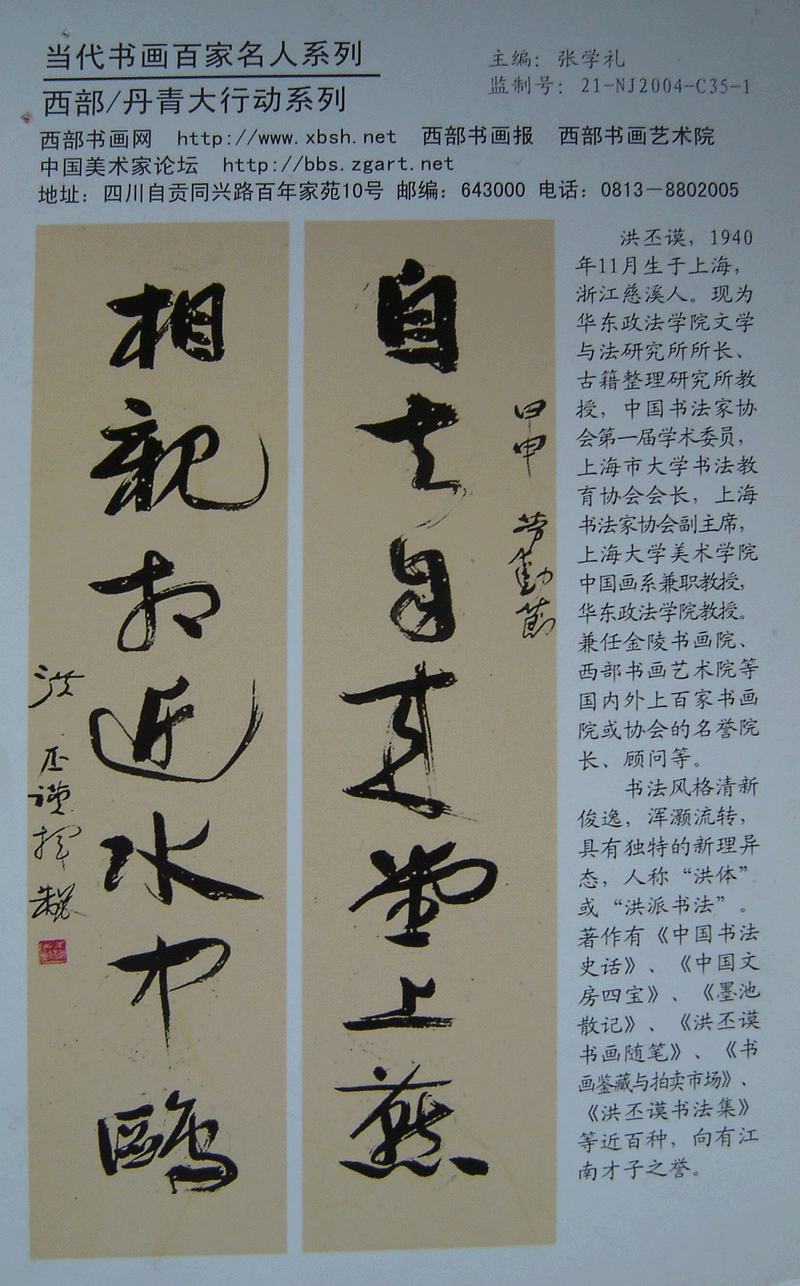 当代书画百家名人系列
主编：张学礼
监制号：21-NJ2004-C35-1
西部/丹青大行动系列
西部书画网 http://www.xbsh.net 西部书画报 西部书画艺术院
中国美术家论坛 http://bbs.zgart.net
地址：四川自贡同兴路百年家苑10号 邮编：643000 电话：0813－8802005
甲申 劳動節
自去自来堂上燕
相親相近水中鷗
洪丕謨揮毫
洪丕谟，1940
年11月生于上海，
浙江慈溪人。现为
华东政法学院文学
与法研究所所长、
古籍整理研究所教
授，中国书法家协
会第一届学术委员，
上海市大学书法教
育协会会长，上海
书法家协会副主席，
上海大学美术学院
中国画系兼职教授，
华东政法学院教授。
兼任金陵书画院、
西部书画艺术院等
国内外上百家书画
院或协会的名誉院
长、顾问等。
书法风格清新
俊逸，浑灏流转，
具有独特的新理异
态，人称“洪体”
或“洪派书法”。
著作有《中国书法
史话》、《中国文
房四宝》、《墨池
散记》、《洪丕谟
书画随笔》、《书
画鉴藏与拍卖市场》、
《洪丕谟书法集》
等近百种，向有江
南才子之誉。